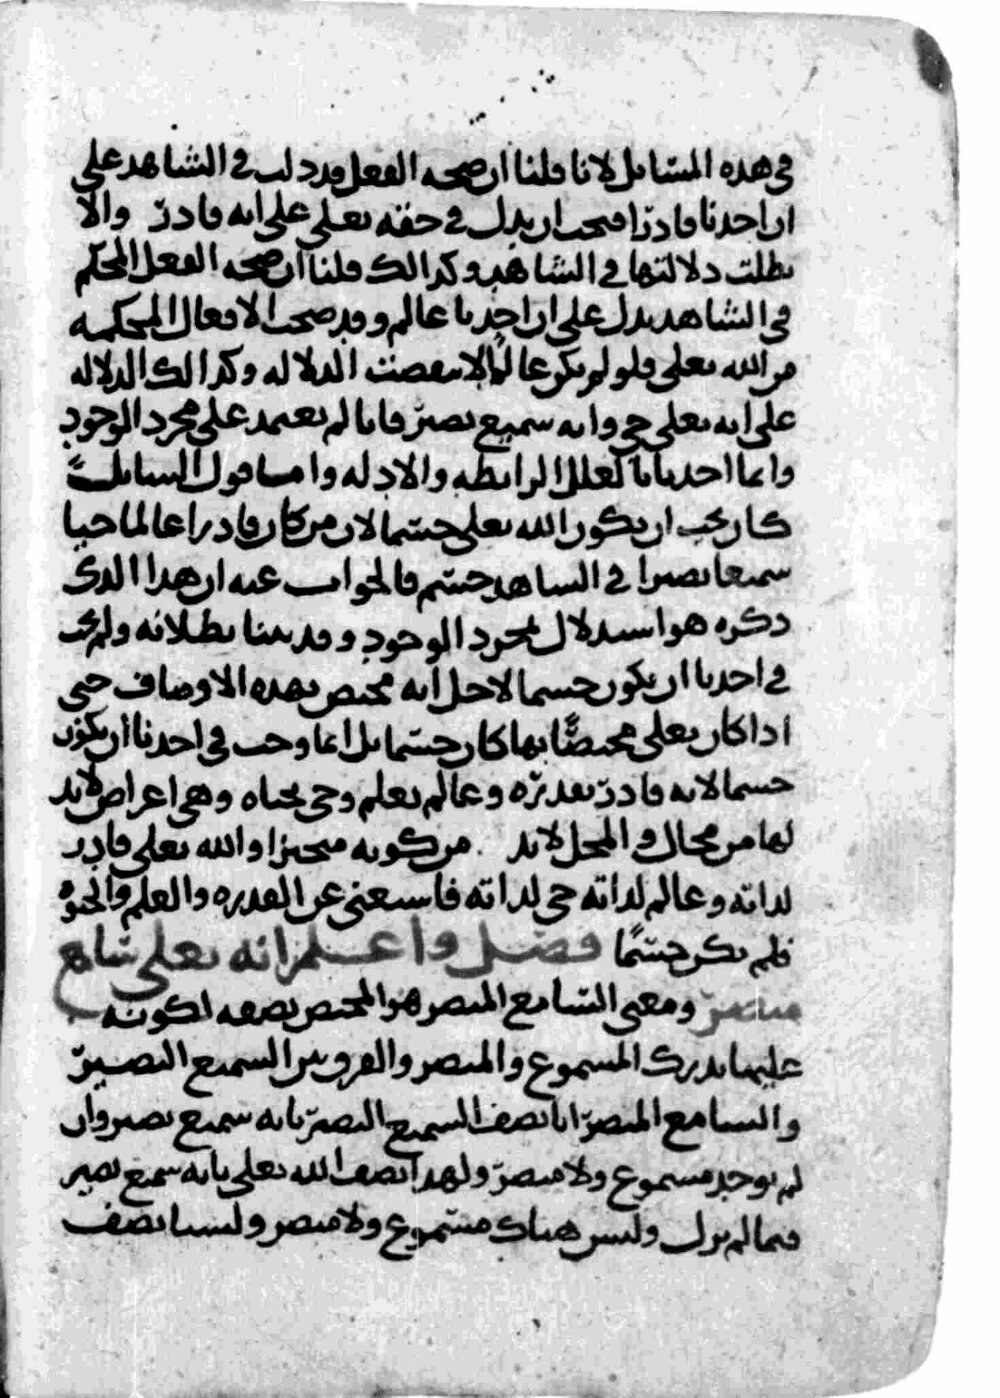 في هذه المسائل لانا قلنا ان صحه الفعل قد دلت في الشاهد على
ان احدنا قادرًا فيجب ان يدل في حقه تعلى على انه قادر والا
بطلت دلالتها في الشاهد وكذالك قلنا ان صحه الفعل المحكم
في الشاهد يدل على ان احدنا عالم وقد صحت الافعال المحكمه
من الله تعلى فلو لم يكن عالمًا لانتقضت الدلاله وكذالك الدلاله
على انه تعلى حي وانه سميع بصير فانا لم نعتمد على مجرد الوجود
وانما اخذنا بالعلل الرابطه والادله واما قول السايل
كان يجب ان يكون الله تعلى جسما لان من كان قادرا عالما حيا
سميعا بصيرا في الشاهد جسم فالجواب عنه ان هذا الذي
ذكره هو استدلال بمجرد الوجود وقد بينا بطلانه ولم يجب
في احدنا ان يكون جسما لاجل انه مختص بهذه الاوصاف حتى
اذا كان تعلى مختصًا بها كان جسما بل انما وجب في احدنا ان يكون
جسما لانه قادر بقدره وعالم بعلم وحي بحياه وهي اعراض لابد
لها من محال والمحل لابد من كونه متحيزا والله تعلى قادر
لذاته وعالم لذاته حي لذاته فاستغنى عن القدره والعلم والحيوه
فلم يكن جسمًا فصل واعلم انه تعلى سامع
مبصر ومعنى السامع المبصر هو المختص بصفه لكونه
عليها يدرك المسموع والمبصر والفرق بين السميع البصير
والسامع المبصر انا نصف السميع البصير بانه سميع بصير وان
لم يوجد مسموع ولا مبصر ولهذا نصف الله تعلى بانه سميع بصير
فيما لم يزل وليس هناك مسموع ولا مبصر ولسنا نصف